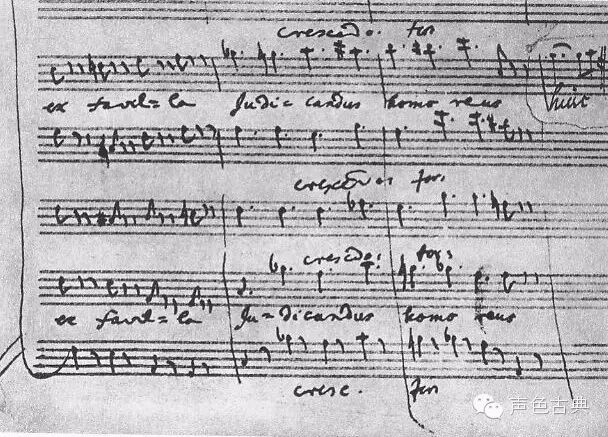 crescdo. for
ex favil=la Judi=candus homo reus huic
cresc for.
crescdo: for:
ex favil=la Ju=dicandus homo reus
cresc. for
声色古典